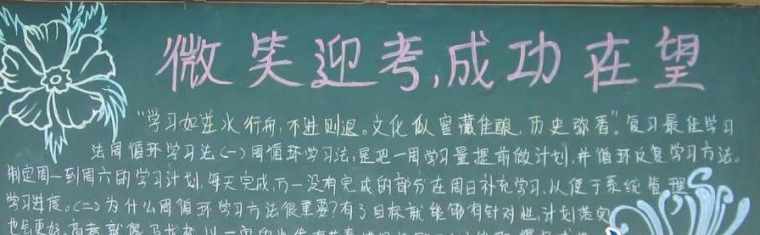 微笑迎考,成功在望
"学习如逆水行舟,不进则退。文化似窖藏佳酿,历史弥香"。复习最佳学习
法周循环学习法(一)周循环学习法,是把一周学习量提前做计划,并循环反复学习方法。
制定周一到周六的学习计划,每天完成,万一没有完成的部分在周日补充学习,以便于系统管理
学习进度。(二)为什么周循环学习方法很重要?有了目标就能够有针对性,计划落实
也更好,